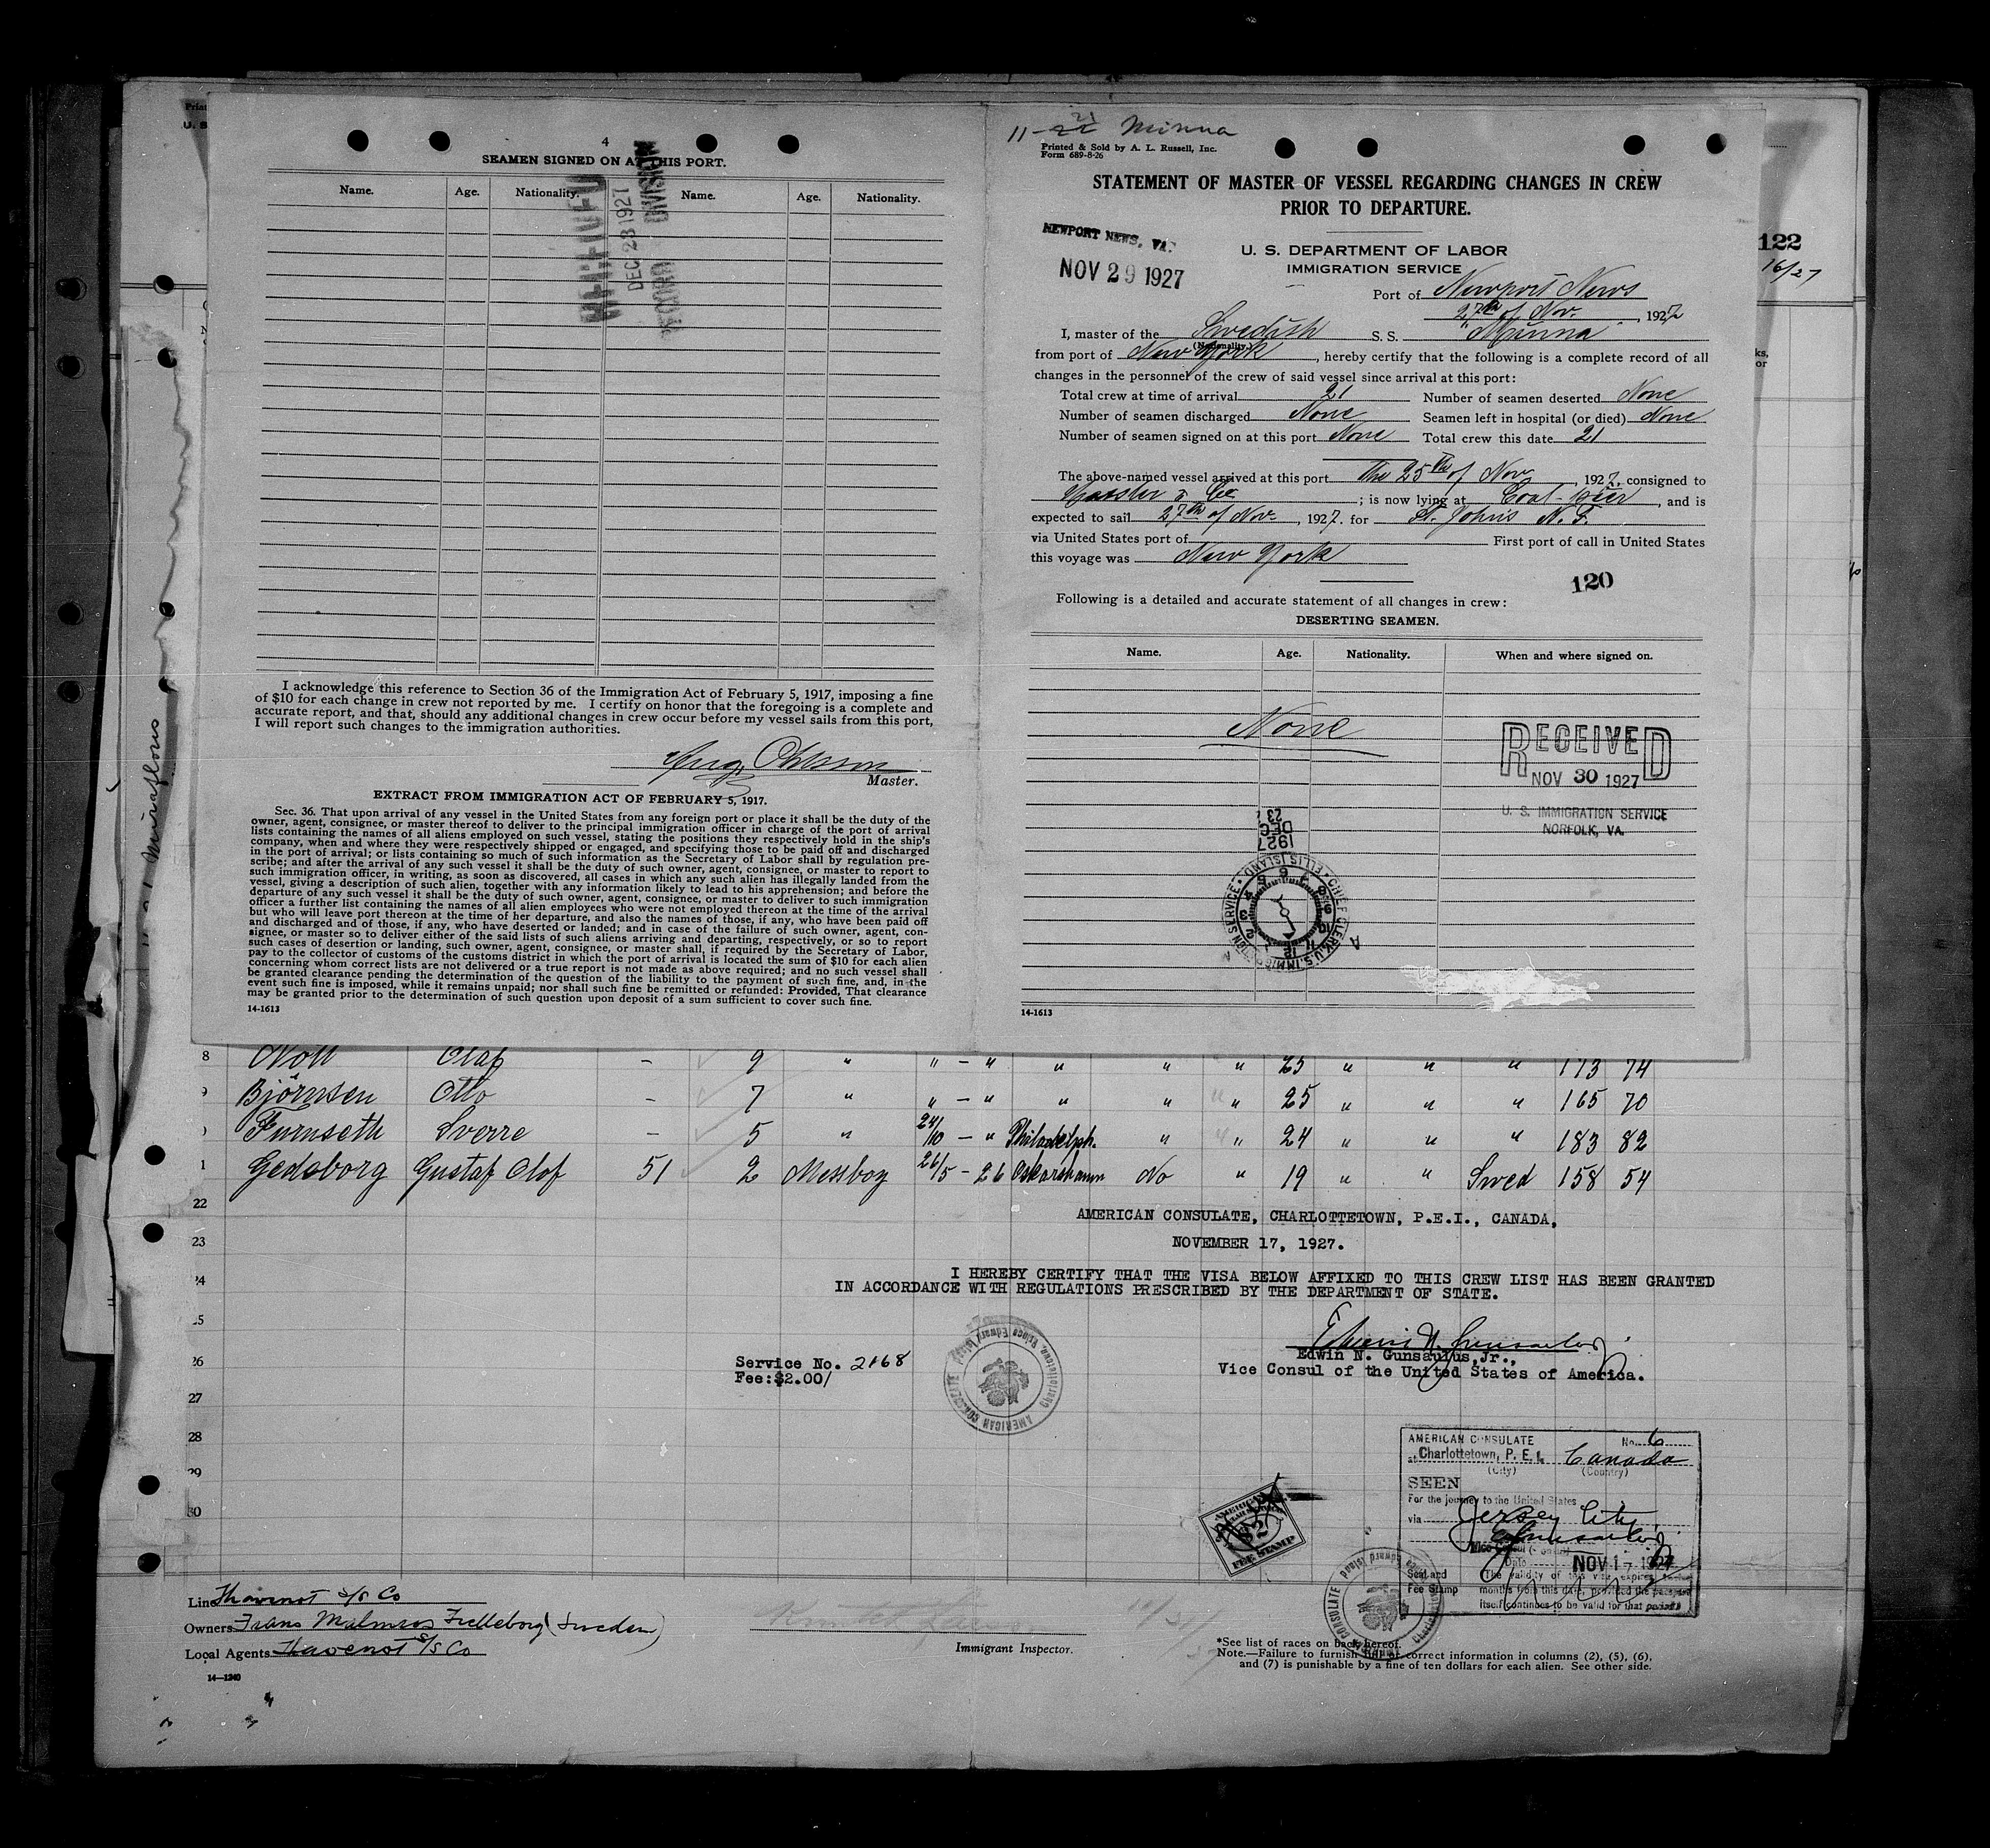 4
SEAMEN SIGNED ON AT THIS PORT.
Name. Age. Nationality. Name. Age. Nationality.
DEC 23 1927
RECORD DIVISION
I acknowledge this reference to Section 36 of the Immigration Act of February 5, 1917, imposing a fine
of $10 for each change in crew not reported by me. I certify on honor that the foregoing is a complete and
accurate report, and that, should any additional changes in crew occur before my vessel sails from this port,
I will report such changes to the immigration authorities.
Aug. Ohlsson
Master.
EXTRACT FROM IMMIGRATION ACT OF FEBRUARY 5, 1917.
Sec. 36. That upon arrival of any vessel in the United States from any foreign port or place it shall be the duty of the
owner, agent, consignee, or master thereof to deliver to the principal immigration officer in charge of the port of arrival
lists containing the names of all aliens employed on such vessel, stating the positions they respectively hold in the ship's
company, when and where they were respectively shipped or engaged, and specifying those to be paid off and discharged
in the port of arrival; or lists containing so much of such information as the Secretary of Labor shall by regulation pre-
scribe; and after the arrival of any such vessel it shall be the duty of such owner, agent, consignee, or master to report to
such immigration officer, in writing, as soon as discovered, all cases in which any such alien has illegally landed from the
vessel, giving a description of such alien, together with any information likely to lead to his apprehension; and before the
departure of any such vessel it shall be the duty of such owner, agent, consignee, or master to deliver to such immigration
officer a further list containing the names of all alien employees who were not employed thereon at the time of the arrival
but who will leave port thereon at the time of her departure, and also the names of those, if any, who have been paid off
and discharged and of those, if any, who have deserted or landed; and in case of the failure of such owner, agent, con-
signee, or master so to deliver either of the said lists of such aliens arriving and departing, respectively, or so to report
such cases of desertion or landing, such owner, agent, consignee, or master shall, if required by the Secretary of Labor,
pay to the collector of customs of the customs district in which the port of arrival is located the sum of $10 for each alien
concerning whom correct lists are not delivered or a true report is not made as above required; and no such vessel shall
be granted clearance pending the determination of the question of the liability to the payment of such fine, and, in the
event such fine is imposed, while it remains unpaid; nor shall such fine be remitted or refunded: Provided, That clearance
may be granted prior to the determination of such question upon deposit of a sum sufficient to cover such fine.
14-1613
11-22 21 Minna
Printed & Sold by A. L. Russell, Inc.
Form 689-8-26
STATEMENT OF MASTER OF VESSEL REGARDING CHANGES IN CREW
PRIOR TO DEPARTURE.
NEWPORT NEWS, VA.
NOV 29 1927
U. S. DEPARTMENT OF LABOR
IMMIGRATION SERVICE
Port of Newport News
27th of Nov. , 1927
I, master of the Swedish S. S. "Minna"
(Nationality.)
from port of New York , hereby certify that the following is a complete record of all
changes in the personnel of the crew of said vessel since arrival at this port:
Total crew at time of arrival 21 Number of seamen deserted None
Number of seamen discharged None Seamen left in hospital (or died) None
Number of seamen signed on at this port None Total crew this date 21
The above-named vessel arrived at this port the 25th of Nov , 1927, consigned to
Hassler & Co ; is now lying at Coal-pier , and is
expected to sail 27th of Nov. , 1927. for St. Johns N. F.
via United States port of First port of call in United States
this voyage was New York
120
Following is a detailed and accurate statement of all changes in crew:
DESERTING SEAMEN.
Name. Age. Nationality. When and where signed on.
None
RECEIVED
NOV 30 1927
U. S. IMMIGRATION SERVICE
NORFOLK, VA.
1927 DEC 23
CHIEF CLERK U.S. IMMIGRATION SERVICE • ELLIS ISLAND
14-1613
122
16/27
Miraflores
8 Noll Olaf - 9 " " - " " " " 25 " " " 173 74
Björnsen Otto - 7 " " - " " " " 25 " " " 165 70
Furnseth Sverre - 5 " 24/10 - " Philadelph. " " 24 " " " 183 82
1 Gedsborg Gustaf Olof 51 2 Messboy 26/5 - 26 Oskarshamn No " 19 " " Swed 158 54
22
AMERICAN CONSULATE, CHARLOTTETOWN, P.E.I., CANADA,
23
NOVEMBER 17, 1927.
24
I HEREBY CERTIFY THAT THE VISA BELOW AFFIXED TO THIS CREW LIST HAS BEEN GRANTED
IN ACCORDANCE WITH REGULATIONS PRESCRIBED BY THE DEPARTMENT OF STATE.
Edwin N. Gunsaulus Jr.
26
Service No. 2168
Fee:$2.00/
Edwin N. Gunsaulus, Jr.,
Vice Consul of the United States of America.
AMERICAN CONSULATE Charlottetown, Prince Edward Island
27
28
29
30
AMERICAN CONSULATE No. 6
at Charlottetown, P. E. I. Canada
(City) (Country)
SEEN
For the journey to the United States
via Jersey City
Date NOV 17 1927
Seal and
Fee Stamp
The validity of this visa expires
months from this date, provided the passport
itself continues to be valid for that period
AMERICAN
$2
FEE STAMP
Line Thavenot S/S Co
Owners Frans Malmros Trelleborg (Sweden)
Local Agents Thavenot S/S Co
14-1240
Immigrant Inspector.
*See list of races on back hereof.
Note.—Failure to furnish full or correct information in columns (2), (5), (6),
and (7) is punishable by a fine of ten dollars for each alien. See other side.